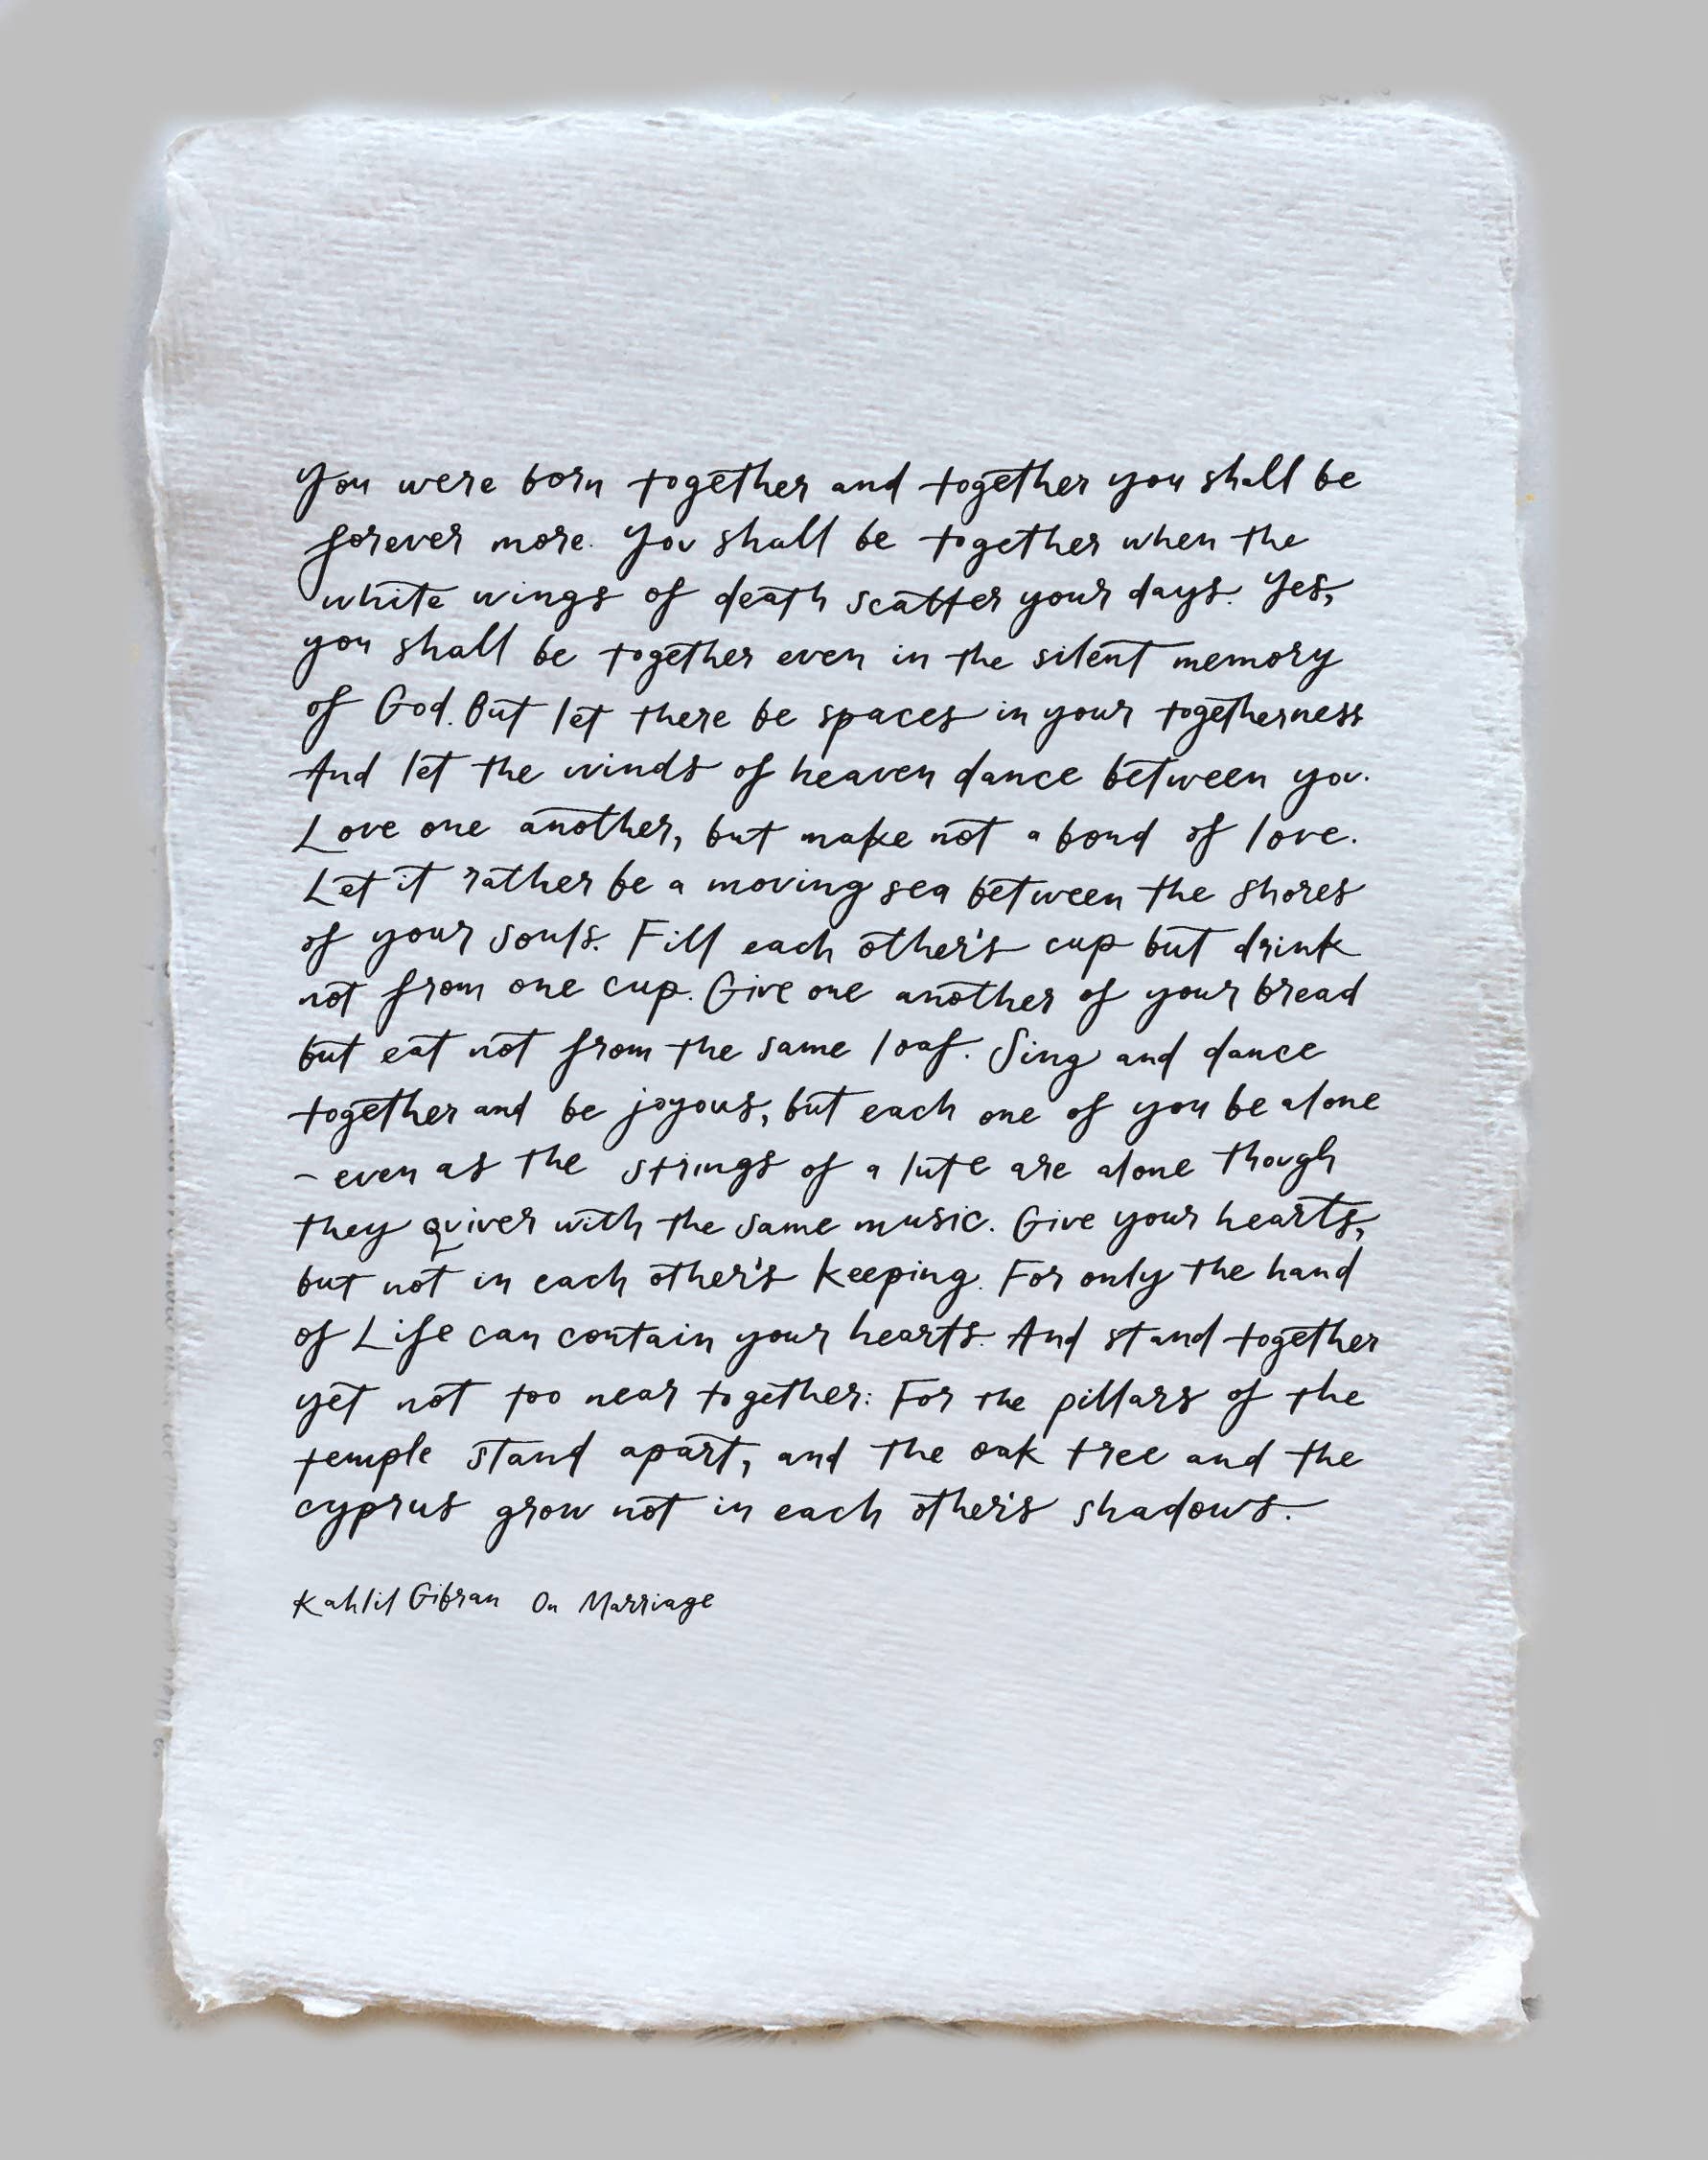 You were born together and together you shall be
forever more. You shall be together when the
white wings of death scatter your days. Yes,
you shall be together even in the silent memory
of God. But let there be spaces in your togetherness
And let the winds of heaven dance between you.
Love one another, but make not a bond of love.
Let it rather be a moving sea between the shores
of your souls. Fill each other's cup but drink
not from one cup. Give one another of your bread
but eat not from the same loaf. Sing and dance
together and be joyous, but each one of you be alone
- even as the strings of a lute are alone though
they quiver with the same music. Give your hearts,
but not in each other's keeping. For only the hand
of Life can contain your hearts. And stand together
yet not too near together: For the pillars of the
temple stand apart, and the oak tree and the
cyprus grow not in each other's shadows.
Kahlil Gibran On Marriage